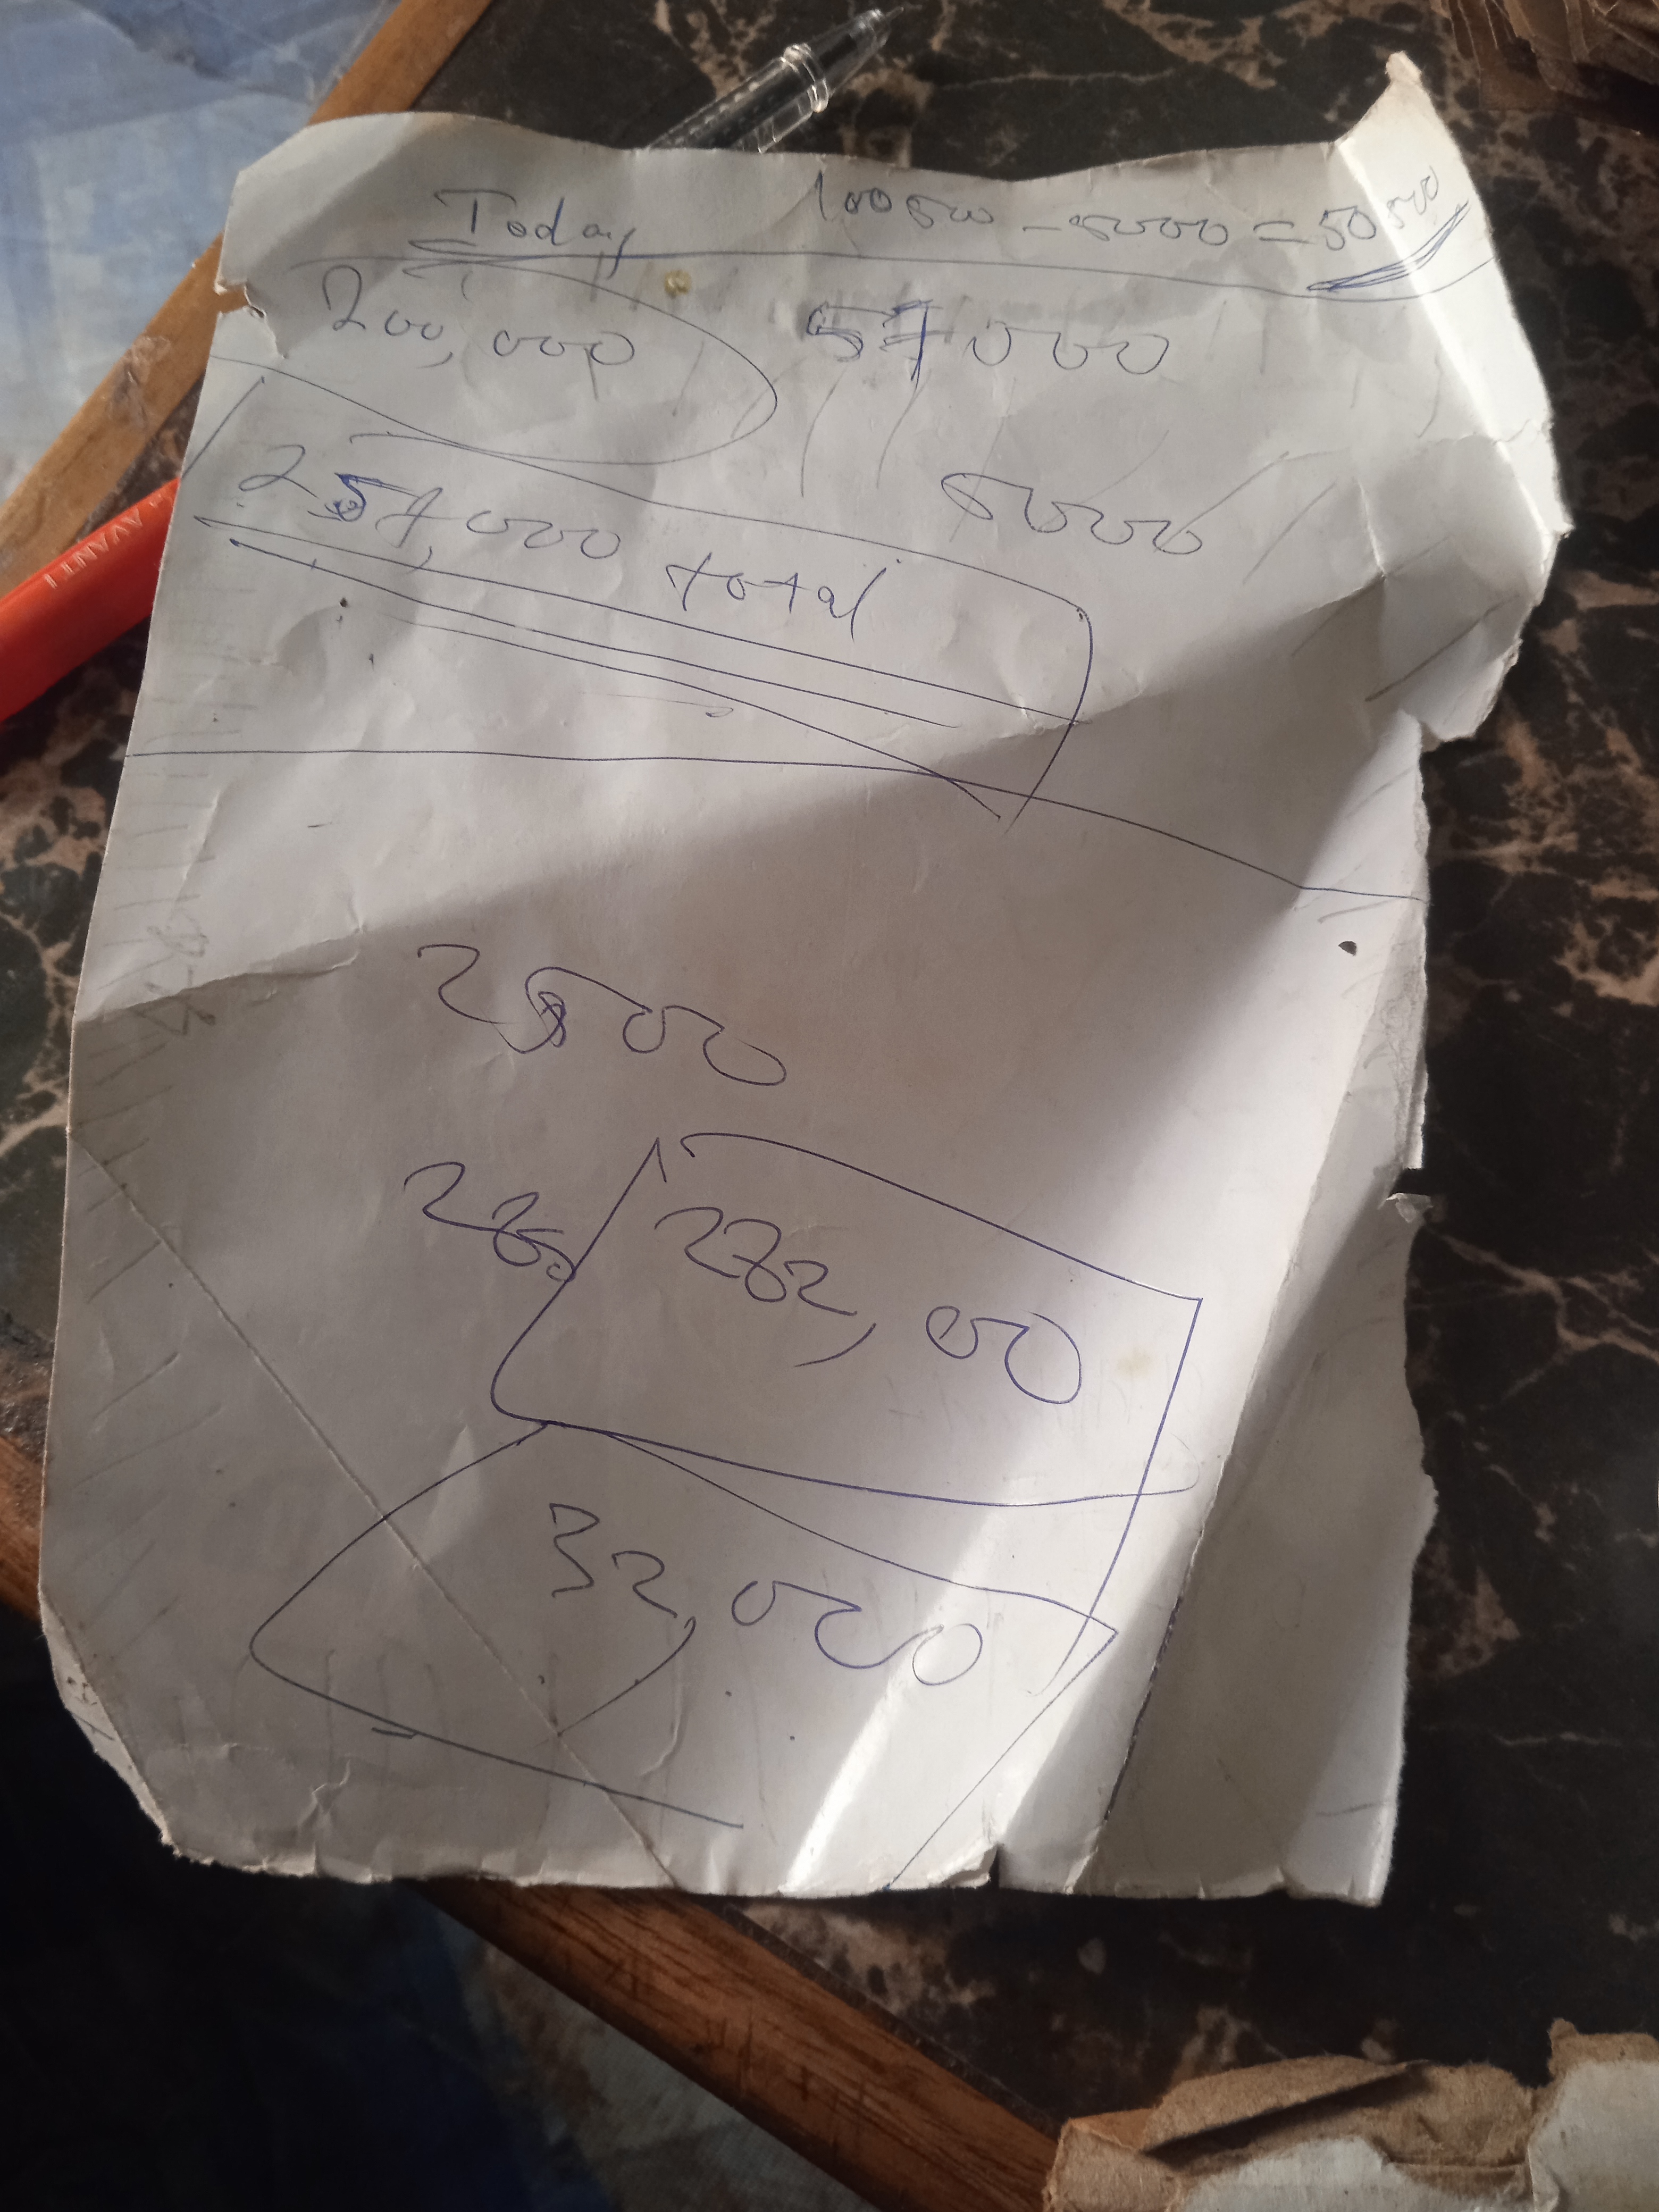 Today 100500 - 50000 = 50500
200,000 57000
257,000 total
5000
2500
282,000
32,000
AVANTI